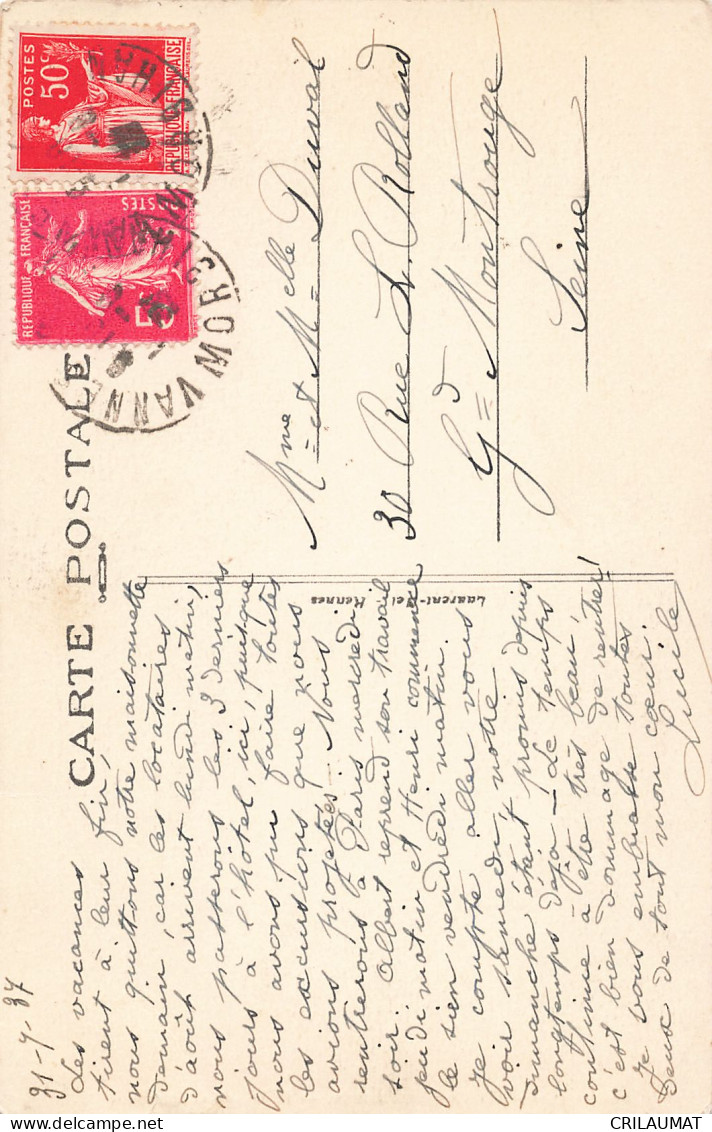 CARTE POSTALE
31-7-37
Les vacances
tirent à leur fin,
nous quittons notre maisonnette
demain, car les locataires
d'août arrivent lundi matin,
nous passerons les 3 derniers
jours à l'hôtel, ici, puisque
nous avons pu faire toutes
les excursions que nous
avions projetées. Nous
rentrerons à Paris mercredi
soir. Albert reprend son travail
jeudi matin et Henri commence
le sien vendredi matin.
Je compte aller vous
voir samedi, notre
dimanche étant promis depuis
longtemps déjà - Le temps
continue à être très beau,
c'est bien dommage de rentrer!
Je vous embrasse toutes
deux de tout mon cœur.
Lucile
Laurent-Nel Rennes
Mme et Melle Duval
30 Rue L. Rolland
Gd Montrouge
Seine
POSTES
50c
REPUBLIQUE FRANÇAISE
POSTES
REPUBLIQUE FRANÇAISE
VANNES
MORBIHAN
CRILAUMAT